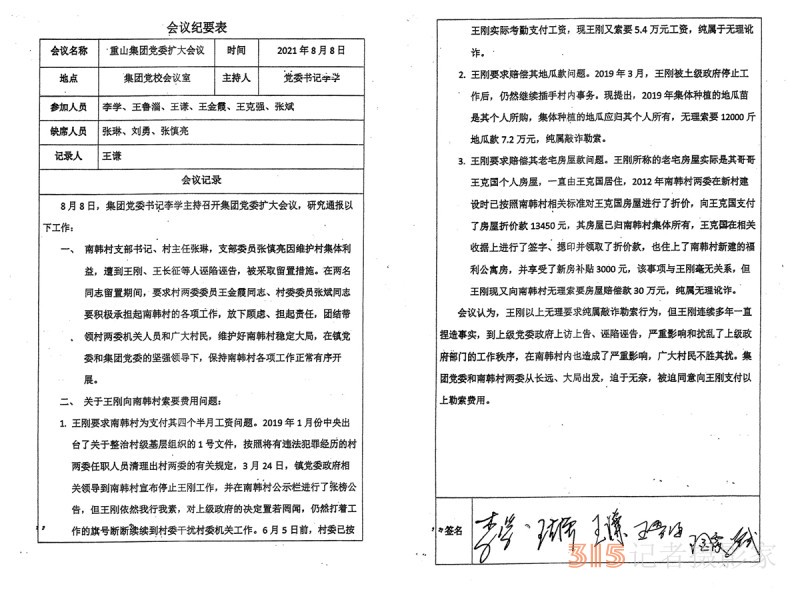 会议纪要表
会议名称 重山集团党委扩大会议 时间 2021年8月8日
地点 集团党校会议室 主持人 党委书记李学
参加人员 李学、王鲁淄、王谦、王金霞、王克强、张斌
缺席人员 张琳、刘勇、张慎亮
记录人 王谦
会议记录
8月8日，集团党委书记李学主持召开集团党委扩大会议，研究通报以
下工作：
一、 南韩村支部书记、村主任张琳，支部委员张慎亮因维护村集体利
益，遭到王刚、王长征等人诬陷诬告，被采取留置措施。在两名
同志留置期间，要求村两委委员王金霞同志、村委委员张斌同志
要积极承担起南韩村的各项工作，放下顾虑、担起责任，团结带
领村两委机关人员和广大村民，维护好南韩村稳定大局，在镇党
委和集团党委的坚强领导下，保持南韩村各项工作正常有序开
展。
二、 关于王刚向南韩村索要费用问题：
1. 王刚要求南韩村为支付其四个半月工资问题。2019年1月份中央出
台了关于整治村级基层组织的1号文件，按照将有违法犯罪经历的村
两委任职人员清理出村两委的有关规定，3月24日，镇党委政府相
关领导到南韩村宣布停止王刚工作，并在南韩村公示栏进行了张榜公
告，但王刚依然我行我素，对上级政府的决定置若罔闻，仍然打着工
作的旗号断断续续到村委干扰村委机关工作。6月5日前，村委已按
王刚实际考勤支付工资，现王刚又索要5.4万元工资，纯属于无理讹
诈。
2. 王刚要求赔偿其地瓜款问题。2019年3月，王刚被土级政府停止工
作后，仍然继续插手村内事务。现提出，2019年集体种植的地瓜苗
是其个人所购，集体种植的地瓜应归其个人所有，无理索要12000斤
地瓜款7.2万元，纯属敲诈勒索。
3. 王刚要求赔偿其老宅房屋款问题。王刚所称的老宅房屋实际是其哥哥
王克国个人房屋，一直由王克国居住，2012年南韩村两委在新村建
设时已按照南韩村相关标准对王克国房屋进行了折价，向王克国支付
了房屋折价款13450元，其房屋已归南韩村集体所有，王克国在相关
收据上进行了签字、摁印并领取了折价款，也住上了南韩村新建的福
利公寓房，并享受了新房补贴3000元，该事项与王刚毫无关系，但
王刚现又向南韩村无理索要房屋赔偿款30万元，纯属无理讹诈。
会议认为，王刚以上无理要求纯属敲诈勒索行为，但王刚连续多年一直
捏造事实，到上级党委政府上访上告、诬陷诬告，严重影响和扰乱了上级政
府部门的工作秩序，在南韩村内也造成了严重影响，广大村民不胜其扰。集
团党委和南韩村两委从长远、大局出发，迫于无奈，被迫同意向王刚支付以
上勒索费用。
签名 李学 王谦
315记者摄影家